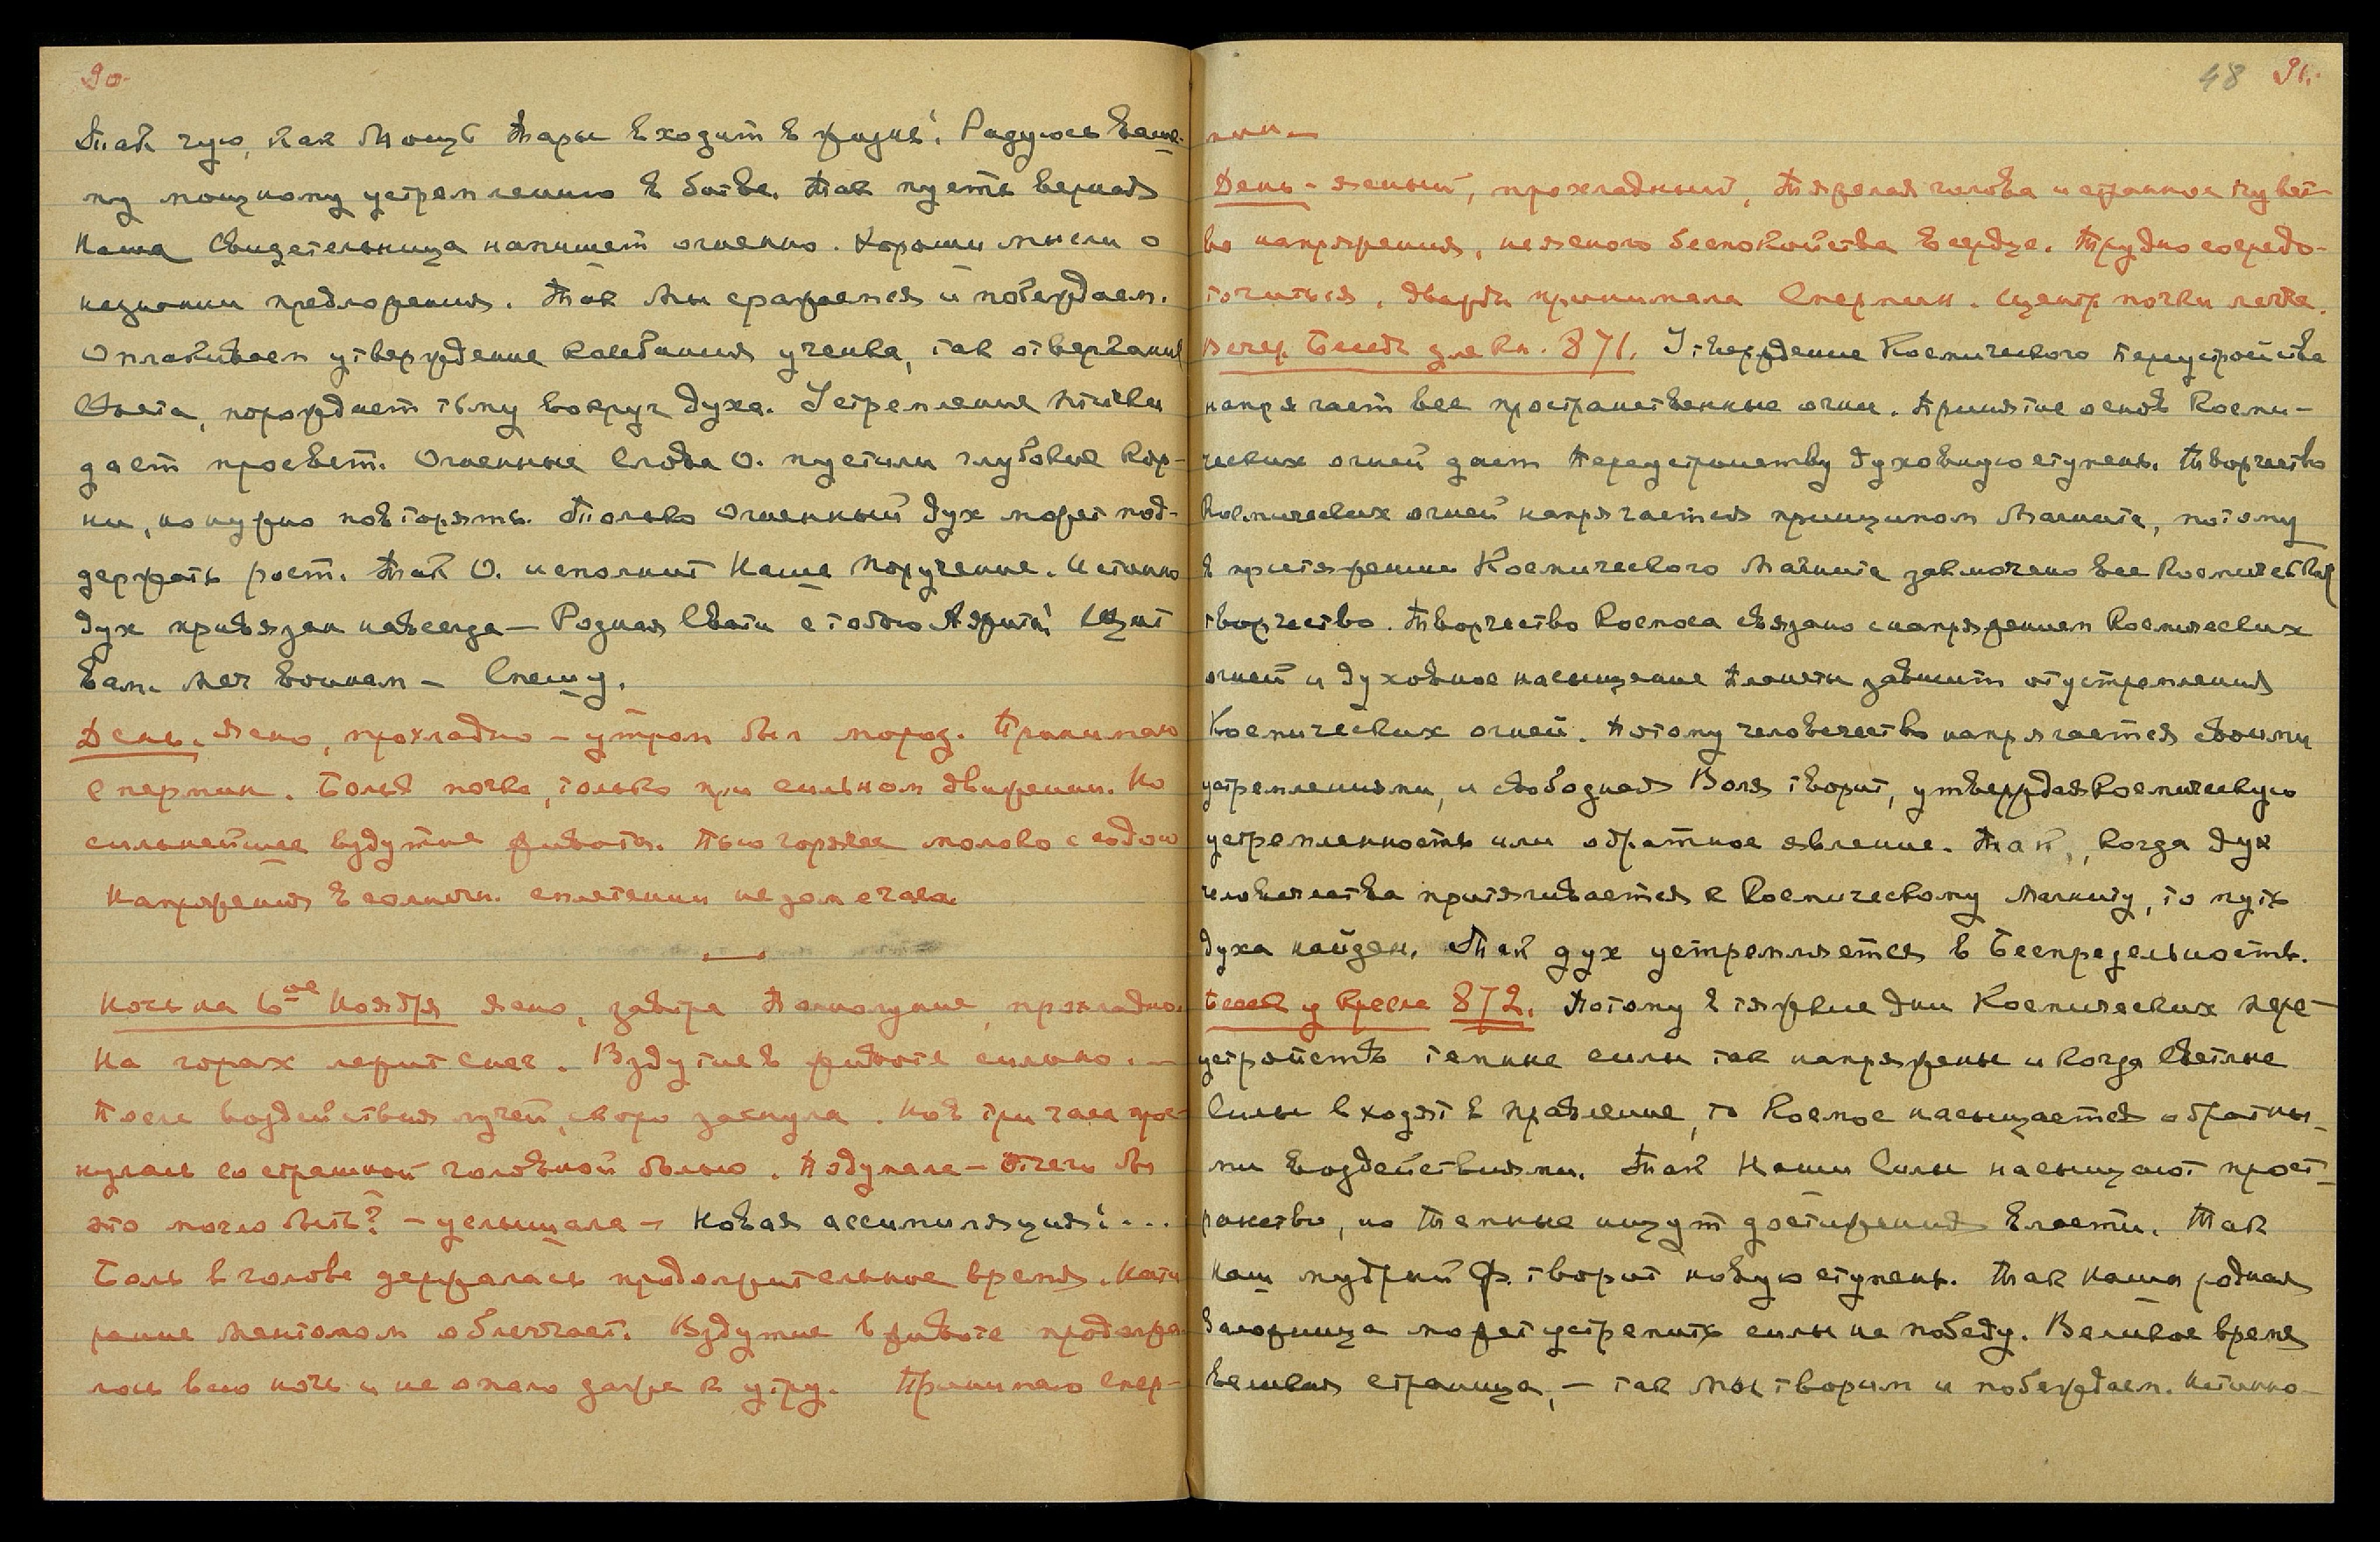 90.
Так чую, как Мощь Тары входит в жизнь! Радуюсь ваше-
му мощному устремлению в битве. Так пусть верная
Наша Свидетельница напишет огненно. Хороши мысли о
предложения. Так Мы сражаемся и побеждаем.
Оплакиваем утверждение колебания ученика, так отвергание
Света, порождает тьму вокруг духа. Устремление
дает просвет. Огненные Слова О. пустили глубокие кор-
ни, но нужно повторять. Только Огненный дух может под-
держать рост. Так О. исполнит Наше Поручение. Истинно
дух привязан навсегда — Родная Свати с тобою Щит
вам. Меч воинам — Спешу.
День. Ясно, прохладно — утром был мороз. Принимаю
Спермин. Болит почка, только при сильном движении. Но
сильнейшее вздутие живота. Пью горячее молоко с содою
Напряжения в солнечн. сплетении не замечаю.
Ночь на 6ое Ноября ясно, завтра Полнолуние, прохладно.
На горах лежит снег. Вздутие в животе сильно. —
После воздействия лучей, скоро заснула. Но в три часа прос-
нулась со страшной головной болью. Подумала — отчего бы
это могло быть? — услышала — Новая ассимиляция! ...
Боль в голове держалась продолжительное время. Нати-
рание ментолом облегчает. Вздутие в животе продолжа-
лось всю ночь и не опало даже к утру. Принимаю Спер-
48 91.
мин —
День — ясный, прохладный, Тяжелая голова и странное чувст-
во напряжения, неясного беспокойства в сердце. Трудно сосредо-
точиться. Дважды принимала Спермин. Центр почки легче.
Вечер. Беседа для Кн. 871. Утверждение Космического Переустройства
напрягает все пространственные огни. Принятие основ Косми-
ческих огней дает Переустройству духовную ступень. Творчество
Космических огней напрягается принципом Магнита, потому
в притяжении Космического Магнита заключено все Космическое
творчество. Творчество Космоса связано с напряжением Космических
огней и духовное насыщение Планеты зависит от устремления
Космических огней. Потому человечество напрягается своими
устремлениями, и свободная Воля творит, утверждая Космическую
устремленность или обратное явление. Так, когда дух
человечества притягивается к Космическому Магниту, то путь
духа найден. Так дух устремляется в Беспредельность.
Беседа у Кресла 872. Потому в тяжкие дни Космических пере-
устройств темные силы так напряжены и когда Светлые
Силы входят в правление, то Космос насыщается обратны-
ми воздействиями. Так Наши Силы насыщают прост-
ранство, но Темные ищут достижения власти. Так
Наш мудрый Ф. творит новую ступень. Так Наша родная
может устремить силы на победу. Великое время
великая страница, — так Мы творим и побеждаем. Истинно